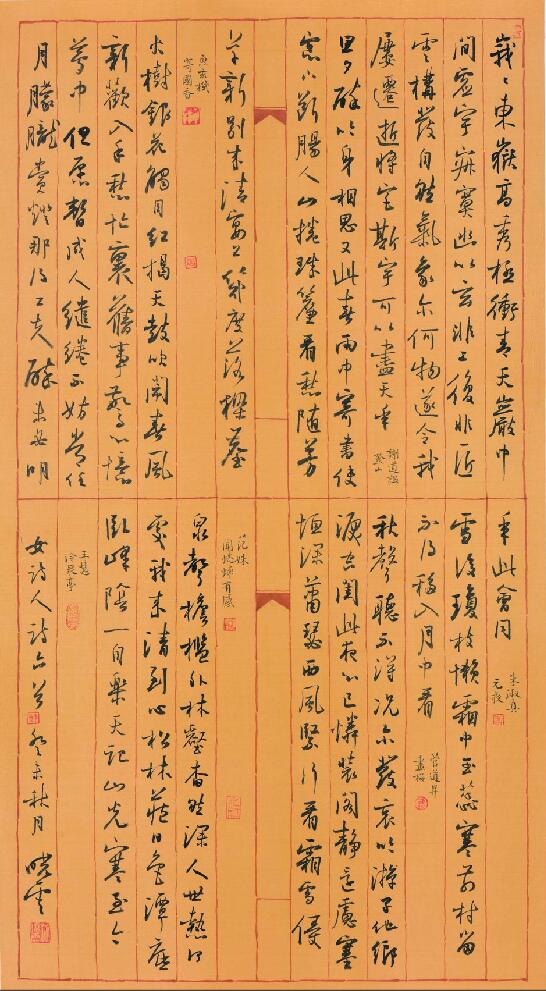 峩〻東嶽高秀極衝青天巖中
間虛宇寂寞幽以玄非工復非匠
雲構發自然氣象爾何物遂令我
屢遷逝將宅斯宇可以盡天年
謝道韞
登山
旦夕醉吟身相思又此春雨中寄書使
窗下斷腸人山捲珠簾看愁隨芳
草新別來清宴上幾度落樑塵
魚玄機
寄國香
火樹銀花觸目紅揭天鼓吹鬧春風
新歡入手愁忙裏舊事驚心憶
夢中但願暫成人繾綣不妨常任
月朦朧賞燈那得工夫醉未必明
年此會同
朱淑真
元夜
雪後瓊枝懶霜中玉蕊寒前村留
不得移入月中看
管道昇
畫梅
秋聲聽不得況爾發哀吟游子他鄉
淚空閨此夜心已憐裝閣靜還慮塞
垣深蕭瑟西風緊行看霜雪侵
范姝
聞蟋蟀有感
泉聲檐檻外林壑杳然深人世熱何
處我來清到心松林藏日色潭底
臥峰陰一自樂天記山光寒至今
王慧
冷泉亭
女詩人詩六首癸未秋月曉雲